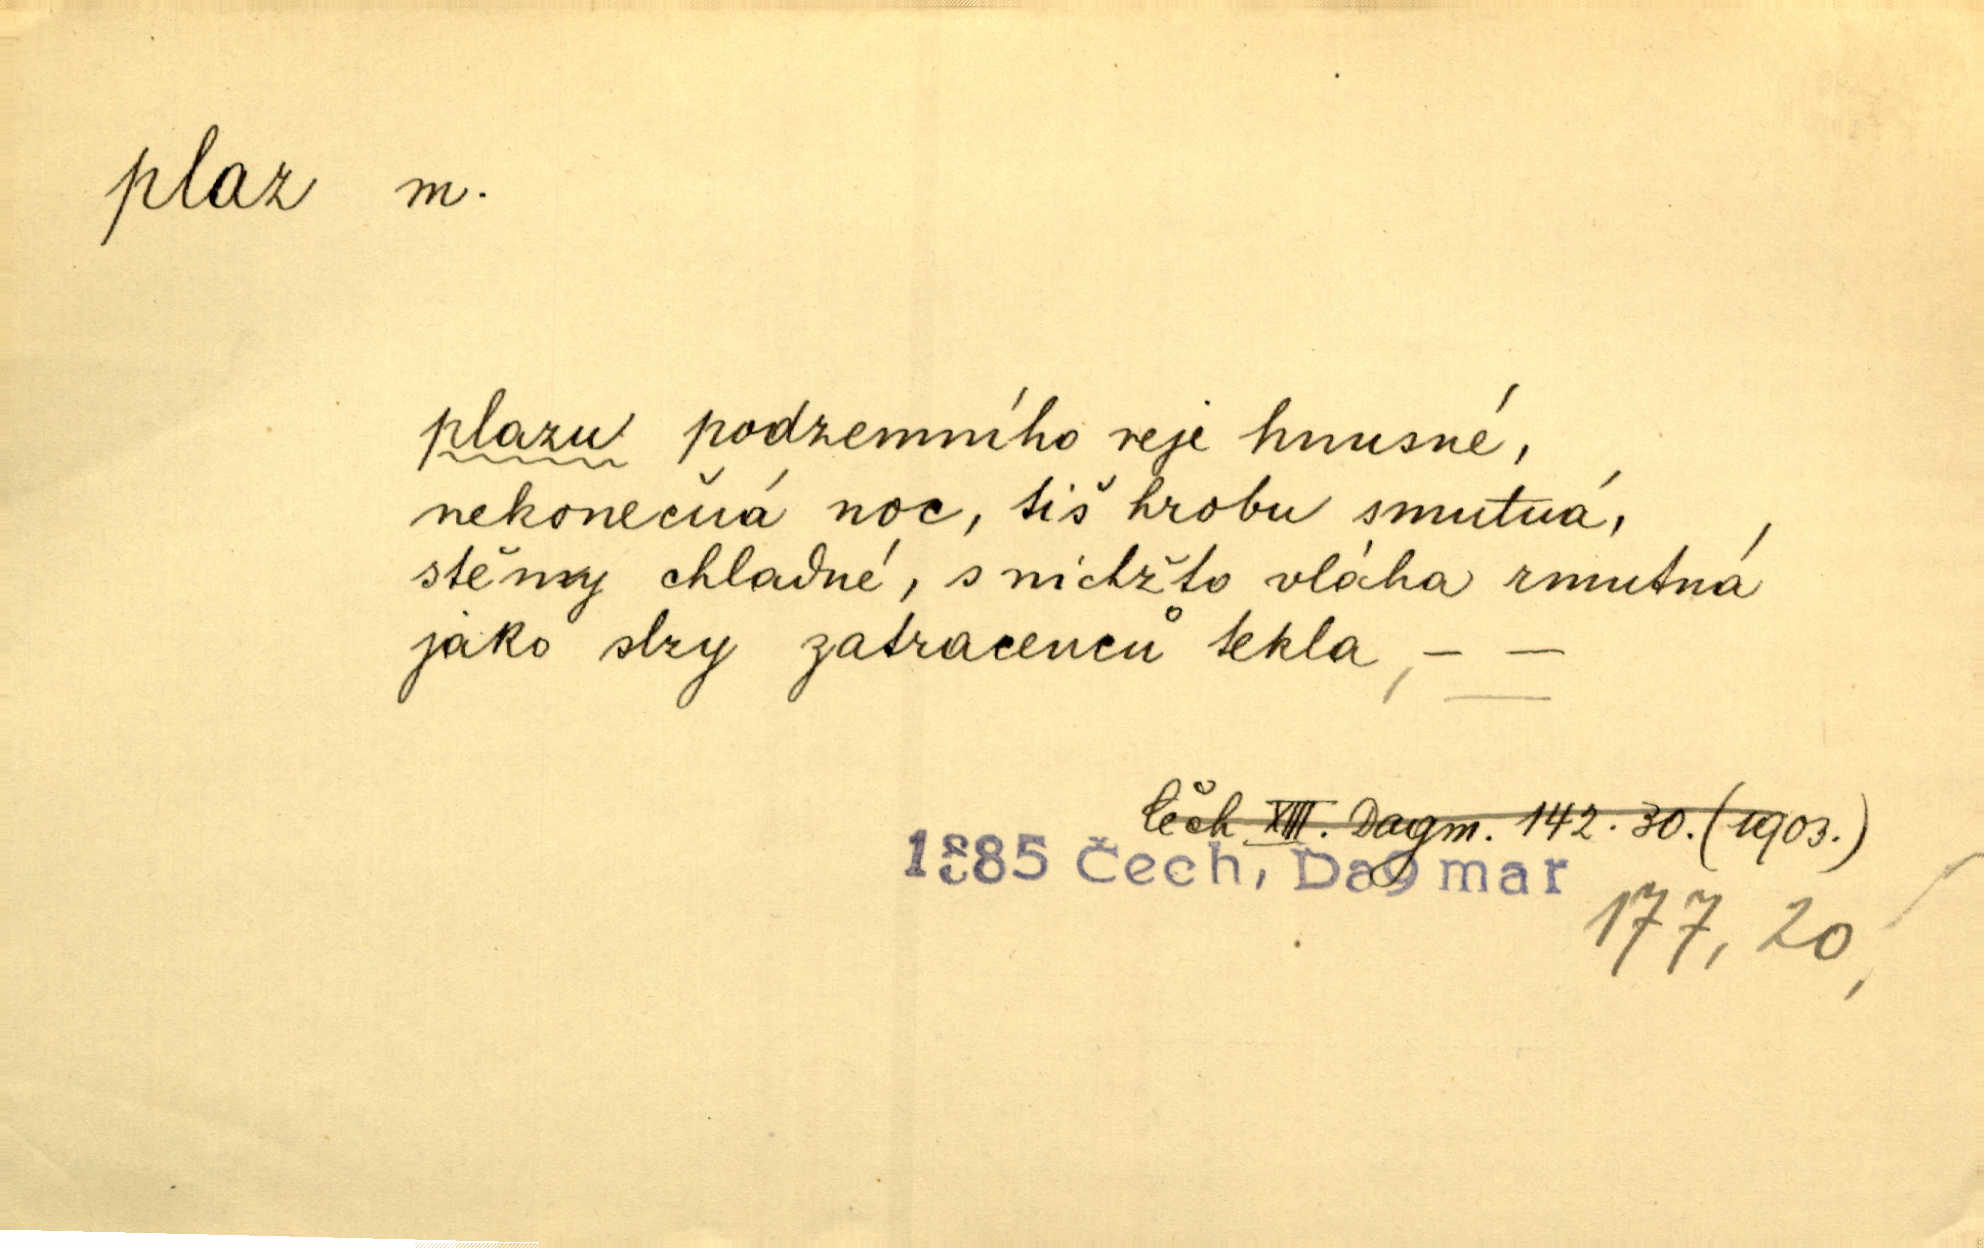 plaz m.
plazu podzemního reje hnusné,
nekonečná noc, tiš hrobu smutná,
stěny chladné, s nichžto vláha rmutná
jako slzy zatracenců tekla, — —
Čech XIII. Dagm. 142. 30. (1903.)
1885 Čech, Dagmar
177, 20,